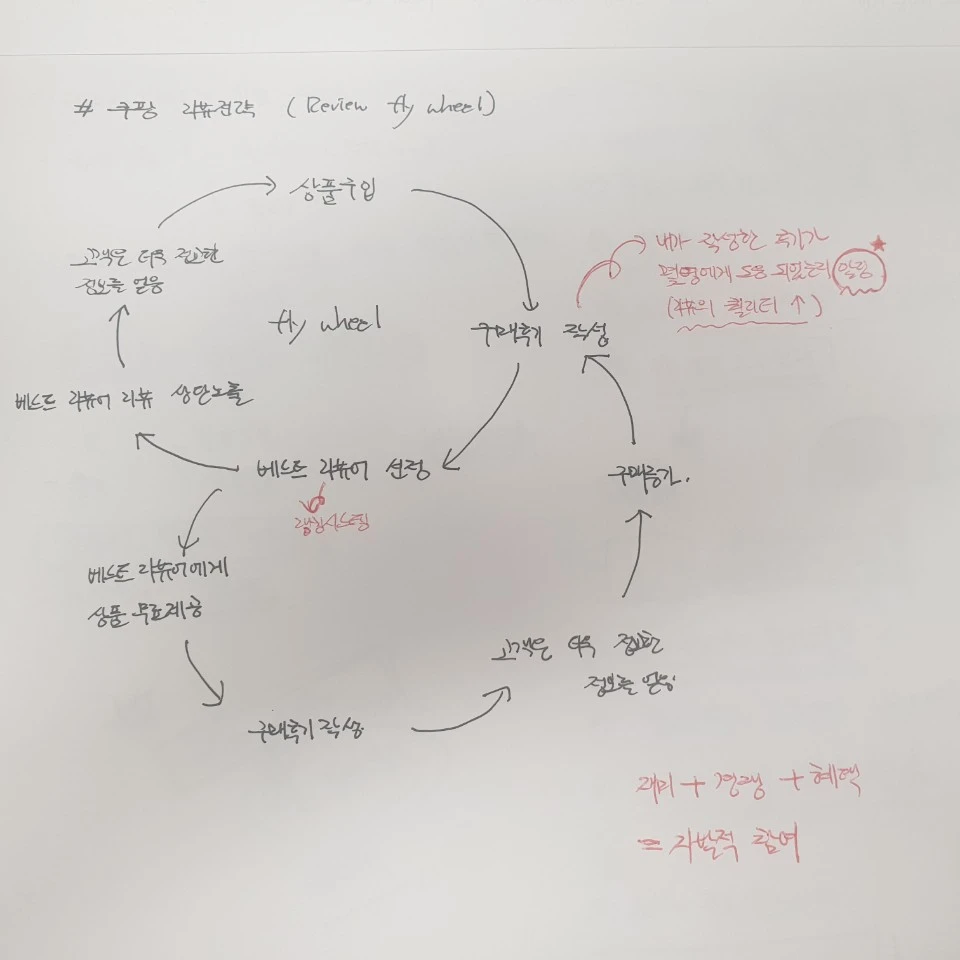 # 쿠팡 리뷰전략 (Review fly wheel)
상품구입
고객은 더욱 정교한
정보를 얻음
내가 작성한 후기가
몇명에게 도움 되었는지 알림
(리뷰의 퀄리티 ↑)
fly wheel
구매후기 작성
베스트 리뷰어 리뷰 상단노출
베스트 리뷰어 선정
랭킹시스템
구매증가.
베스트 리뷰어에게
상품 무료제공
고객은 더욱 정교한
정보를 얻음
구매후기 작성
재미 + 경쟁 + 혜택
= 자발적 참여